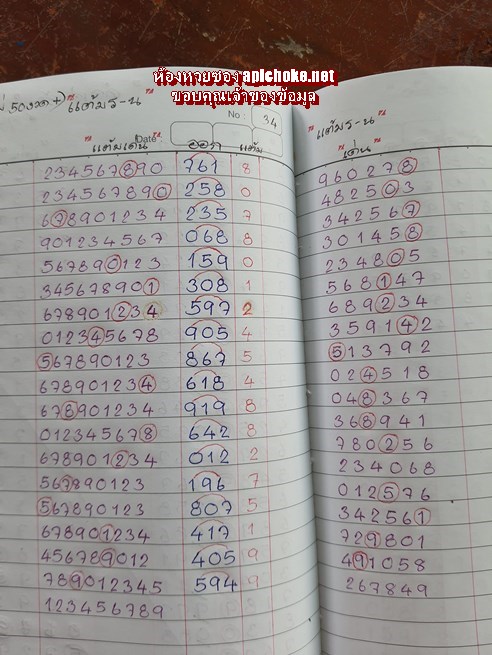 ห้องหวยซอง apichoke.net
ขอบคุณเจ้าของข้อมูล
No : 34
"แต้มร-น"
"แต้มร-น"
Date
"แต้มเด่น" ออรา แต้ม
"เด่น"
234567890 761 8
234567890 258 0
678901234 235 7
901234567 068 8
567890123 159 0
345678901 308 1
678901234 597 2
012345678 905 4
567890123 867 5
678901234 618 4
678901234 919 8
012345678 642 8
678901234 012 2
567890123 196 7
567890123 807 5
678901234 417 1
456789012 405 9
789012345 594 9
123456789
960278
482503
342567
301458
234805
568147
689234
359142
513792
024518
048367
368941
780256
234068
012576
342561
729801
491058
267849